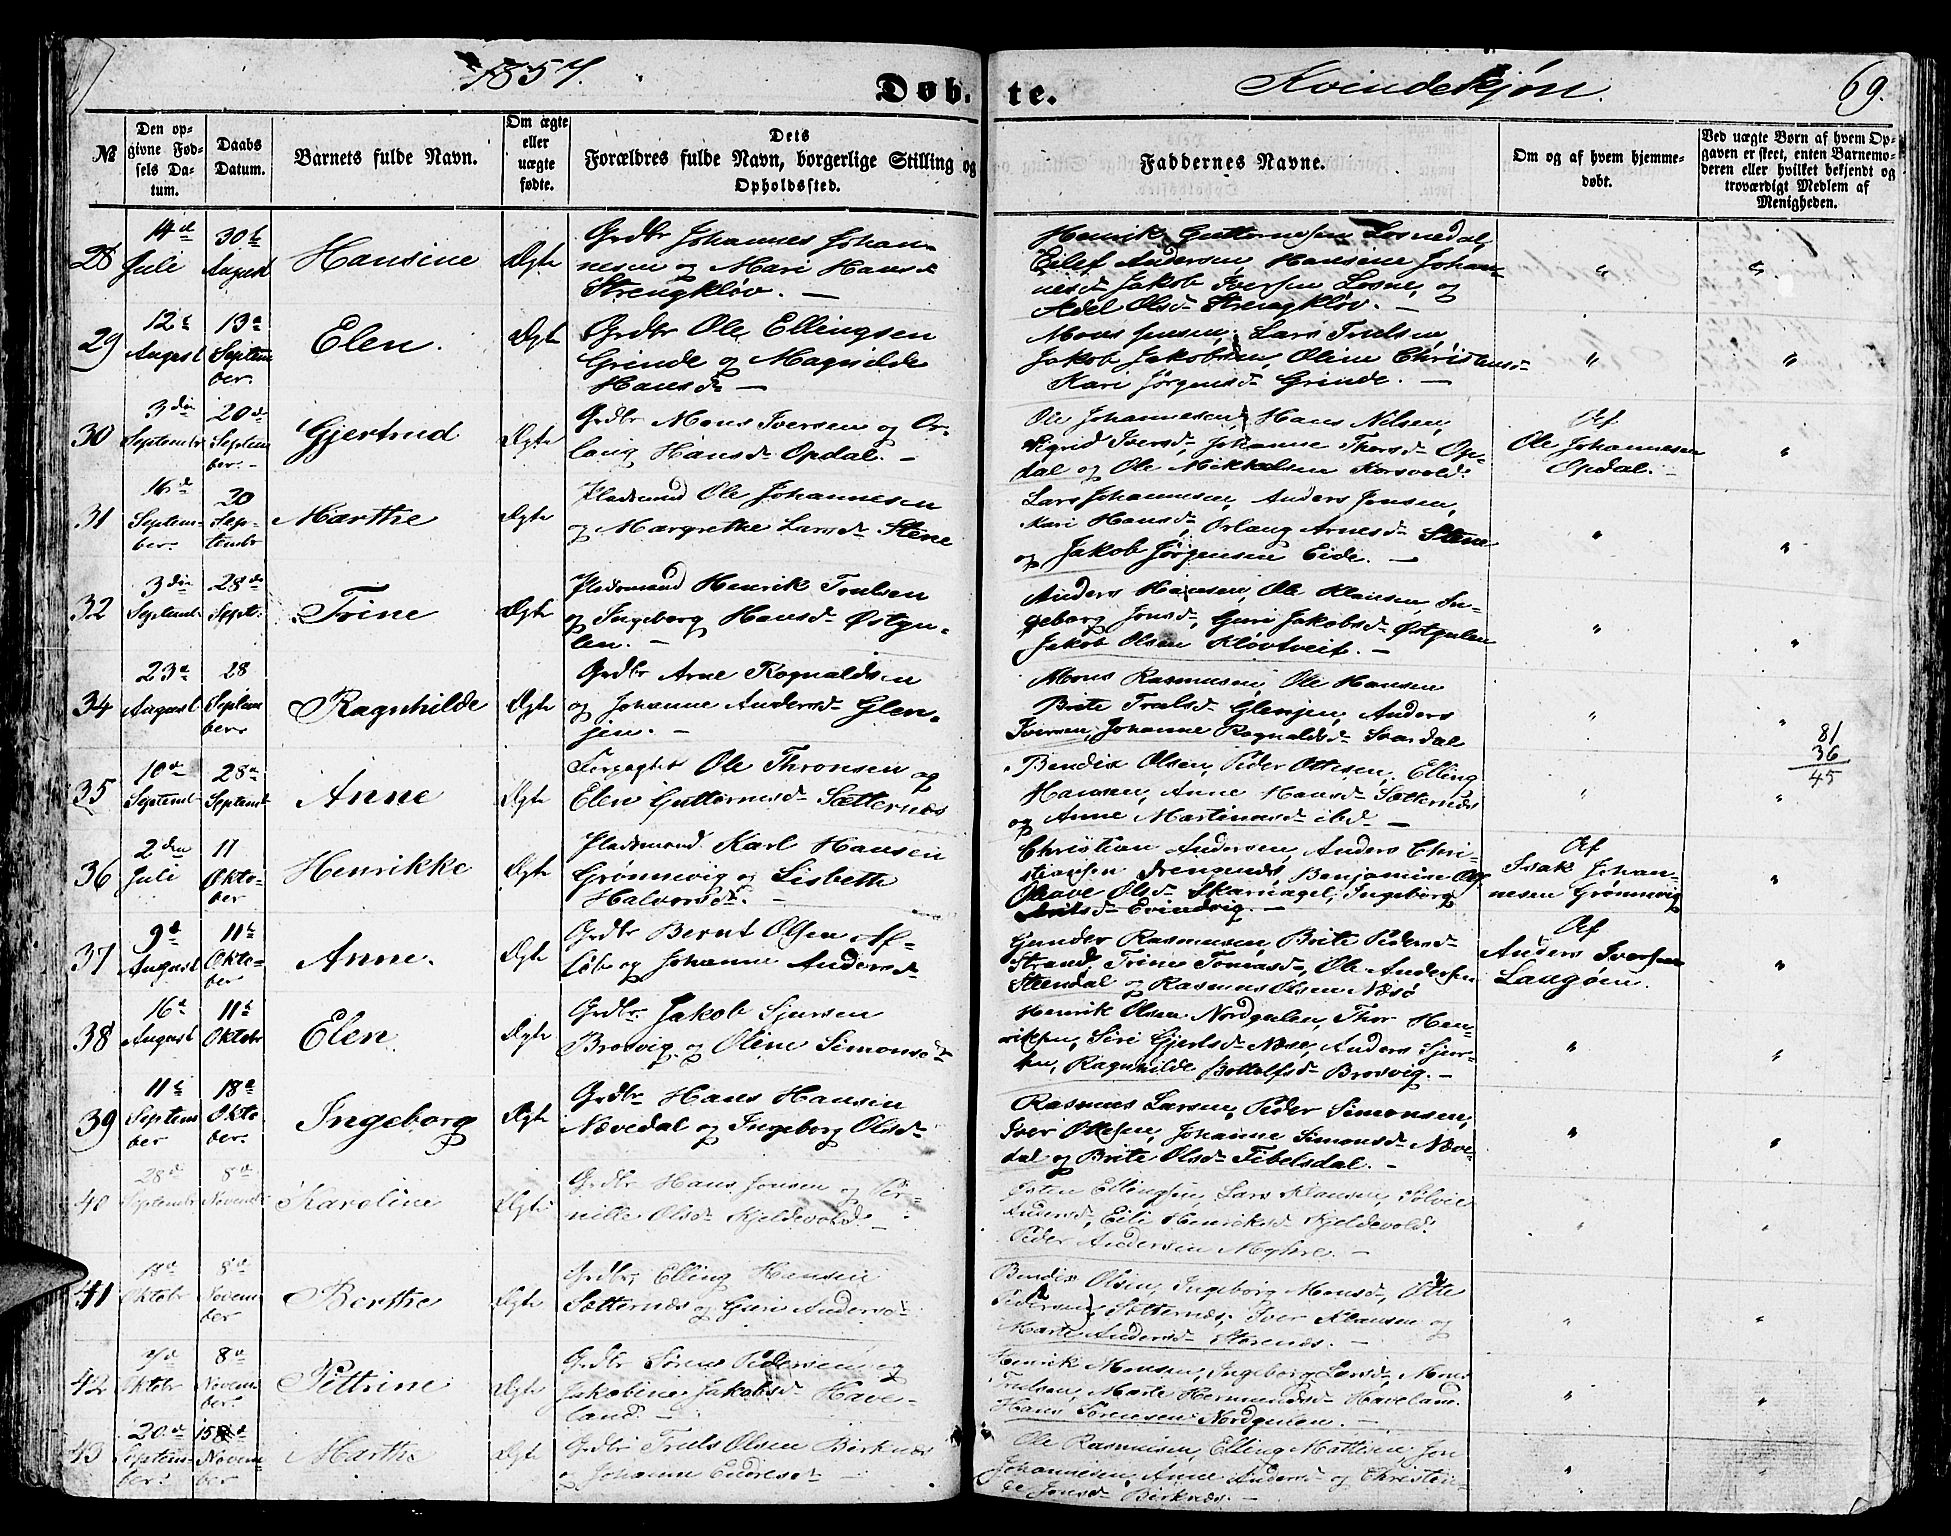 1857.
Døb. te.
Kvindekjøn.
69.
№
Den op-
givne Fød-
sels Da-
tum.
Daabs
Datum.
Barnets fulde Navn.
Om ægte
eller
uægte
fødte.
Dets
Forældres fulde Navn, borgerlige Stilling og
Opholdssted.
Faddernes Navne.
Om og af hvem hjemme-
døbt.
Ved uægte Børn af hvem Op-
gaven er skeet, enten Barnemo-
deren eller hvilket bekjendt og
troværdigt Medlem af
Menigheden.
28
14de
Juli
30te
August
Hansine
Ægte
Grdbr Johannes Johan-
nesen og Mari Hansd.
Strengkløv. —
Henrik Guttormsen Losnedal,
Eilef Andersen, Hansine Johan-
nesd. Jakob Iversen Losne, og
Adel Olsd. Strengkløv. —
"
"
29
12te
August
13de
Septem
ber.
Elen.
Ægte
Grdbr Ole Ellingsen
Grinde og Magnilde
Hansd. —
Mons Jensen, Lars Trulsen,
Jakob Jakobsen, Oline Christensd.
Kari Jørgensd. Grinde. —
"
"
30
3die
Septembr
20de
Septem
ber. -
Gjertrud
Ægte
Grdbr Mons Iversen og Or-
laug Hansd. Opdal. —
Ole Johannesen, Hans Nilsen,
Sigrid Iversd. Johanne Thorsd. Op-
dal og Ole Mikkelsen Korsvold.
Af
Ole Johannesen
Opdal. -
"
31
16de
Septem-
ber.
20
Sep-
tembr
Marthe
Ægte
Pladsmand Ole Johannesen
og Margrethe Larsd. Stene
Lars Johannesen, Anders Jensen,
Kari Hansd. Orlaug Arnesd. Stene
og Jakob Jørgensen Eide. —
"
"
32
3die
Septemb.
28de
Septb.
Trine
Ægte
Pladsmand Henrik Trulsen
og Ingeborg Hansd. Østgu-
len. —
Anders Hansen, Ole Klausen, In-
geborg Jonsd. Guri Jakobsd. Østgulen
Jakob Olsen Kløvtveit. —
"
"
34
23de
August
28
Septem
ber.
Ragnhilde
Ægte
Grdbr Arne Rognaldsen
og Johanne Andersd. Glen-
jen. —
Mons Rasmusen, Ole Hansen
Brite Trulsd. Glenjen, Anders
Iversen, Johanne Rognaldsd. Svardal
"
"
81
36
45
35
10de
Septemb
28de
Septemb
Anne
Ægte
Forpagter Ole Thronsen og
Elen Guttormsd. Sætternæs
Bendix Olsen, Peder Ottesen, Elling
Hansen, Anne Hansd. Sætternæs
og Anne Martinusd. ibd. —
"
"
36
2den
Juli
11
Okto-
ber
Henrikke
Ægte
Pladsmand Karl Hansen
Grønnevig og Lisbeth
Halvorsd. —
Christian Andersen, Anders Chri-
stiansen Drengenes, Benjamine og
Olave Olsd. Skarnagel, Ingeborg
Evindvig. —
Af
Isak Johan-
nesen Grønnevig
"
37
9de
August
11te
Okto-
ber
Anne.
Ægte
Grdbr Bernt Olsen Af-
løb og Johanne Andersd.
Gunder Rasmusen, Brite Pedersd.
Strand, Trine Tomasd., Ole Andersen
Stendal og Rasmus Olsen Næsø
Af
Anders Iversen
Langøen.
"
38
16de
August
11te
Oktobr
Elen
Ægte
Grdbr Jakob Sjursen
Brosvig og Oline Simonsd.
Henrik Olsen Nordgulen, Thor Hen-
riksen, Siri Gjertsd. Næse, Anders Sjur-
sen, Ragnhilde Bottolfsd. Brosvig. —
"
"
39
11te
Septem
ber
18de
Okto-
ber.
Ingeborg
Ægte
Grdbr Hans Hansen
Nævedal og Ingeborg Olsd.
Rasmus Larsen, Peder Simonsen,
Iver Ottesen, Johanne Simonsd. Næve-
dal og Brite Olsd. Tibelsdal. —
"
"
40
28de
Septembr
8de
Novemb.
Karoline
Ægte
Grdbr Hans Jonsen og Per-
nille Olsd. Kjeldevold —
Østen Ellingsen, Lars Klausen, Sølvie
Andersd., Eili Henriksd. Kjeldevold.
Peder Andersen Myhre. —
"
"
41
18de
Oktobr
8de
Novem
ber
Berthe
Ægte
Grdbr Elling Hansen
Sætternæs og Guri Andersd.
Bendix Olsen, Ingeborg Monsd., Otte
Pedersen, Sætternæs, Iver Klausen og
Marte Andersd. Storenæs. —
"
"
42
Oktobr
8de
Novem
ber.
Pettrine
Ægte
Grdbr Søren Pedersen og
Jakobine Jakobsd. Have-
land. —
Henrik Monsen, Ingeborg Larsd., Mons
Trulsen, Marte Hermundsd. Haveland.
Hans Sørensen Nordgulen. —
"
"
43
20de
Septem-
ber.
15de
Novem-
ber
Marthe
Ægte
Grdbr Truls Olsen Birknæs
og Johanne Endresd.
Ole Rasmusen, Elling Mathisen, Jon
Johannesen, Anne Andersd. og Christen-
se Jonsd. Birknæs. —
"
"